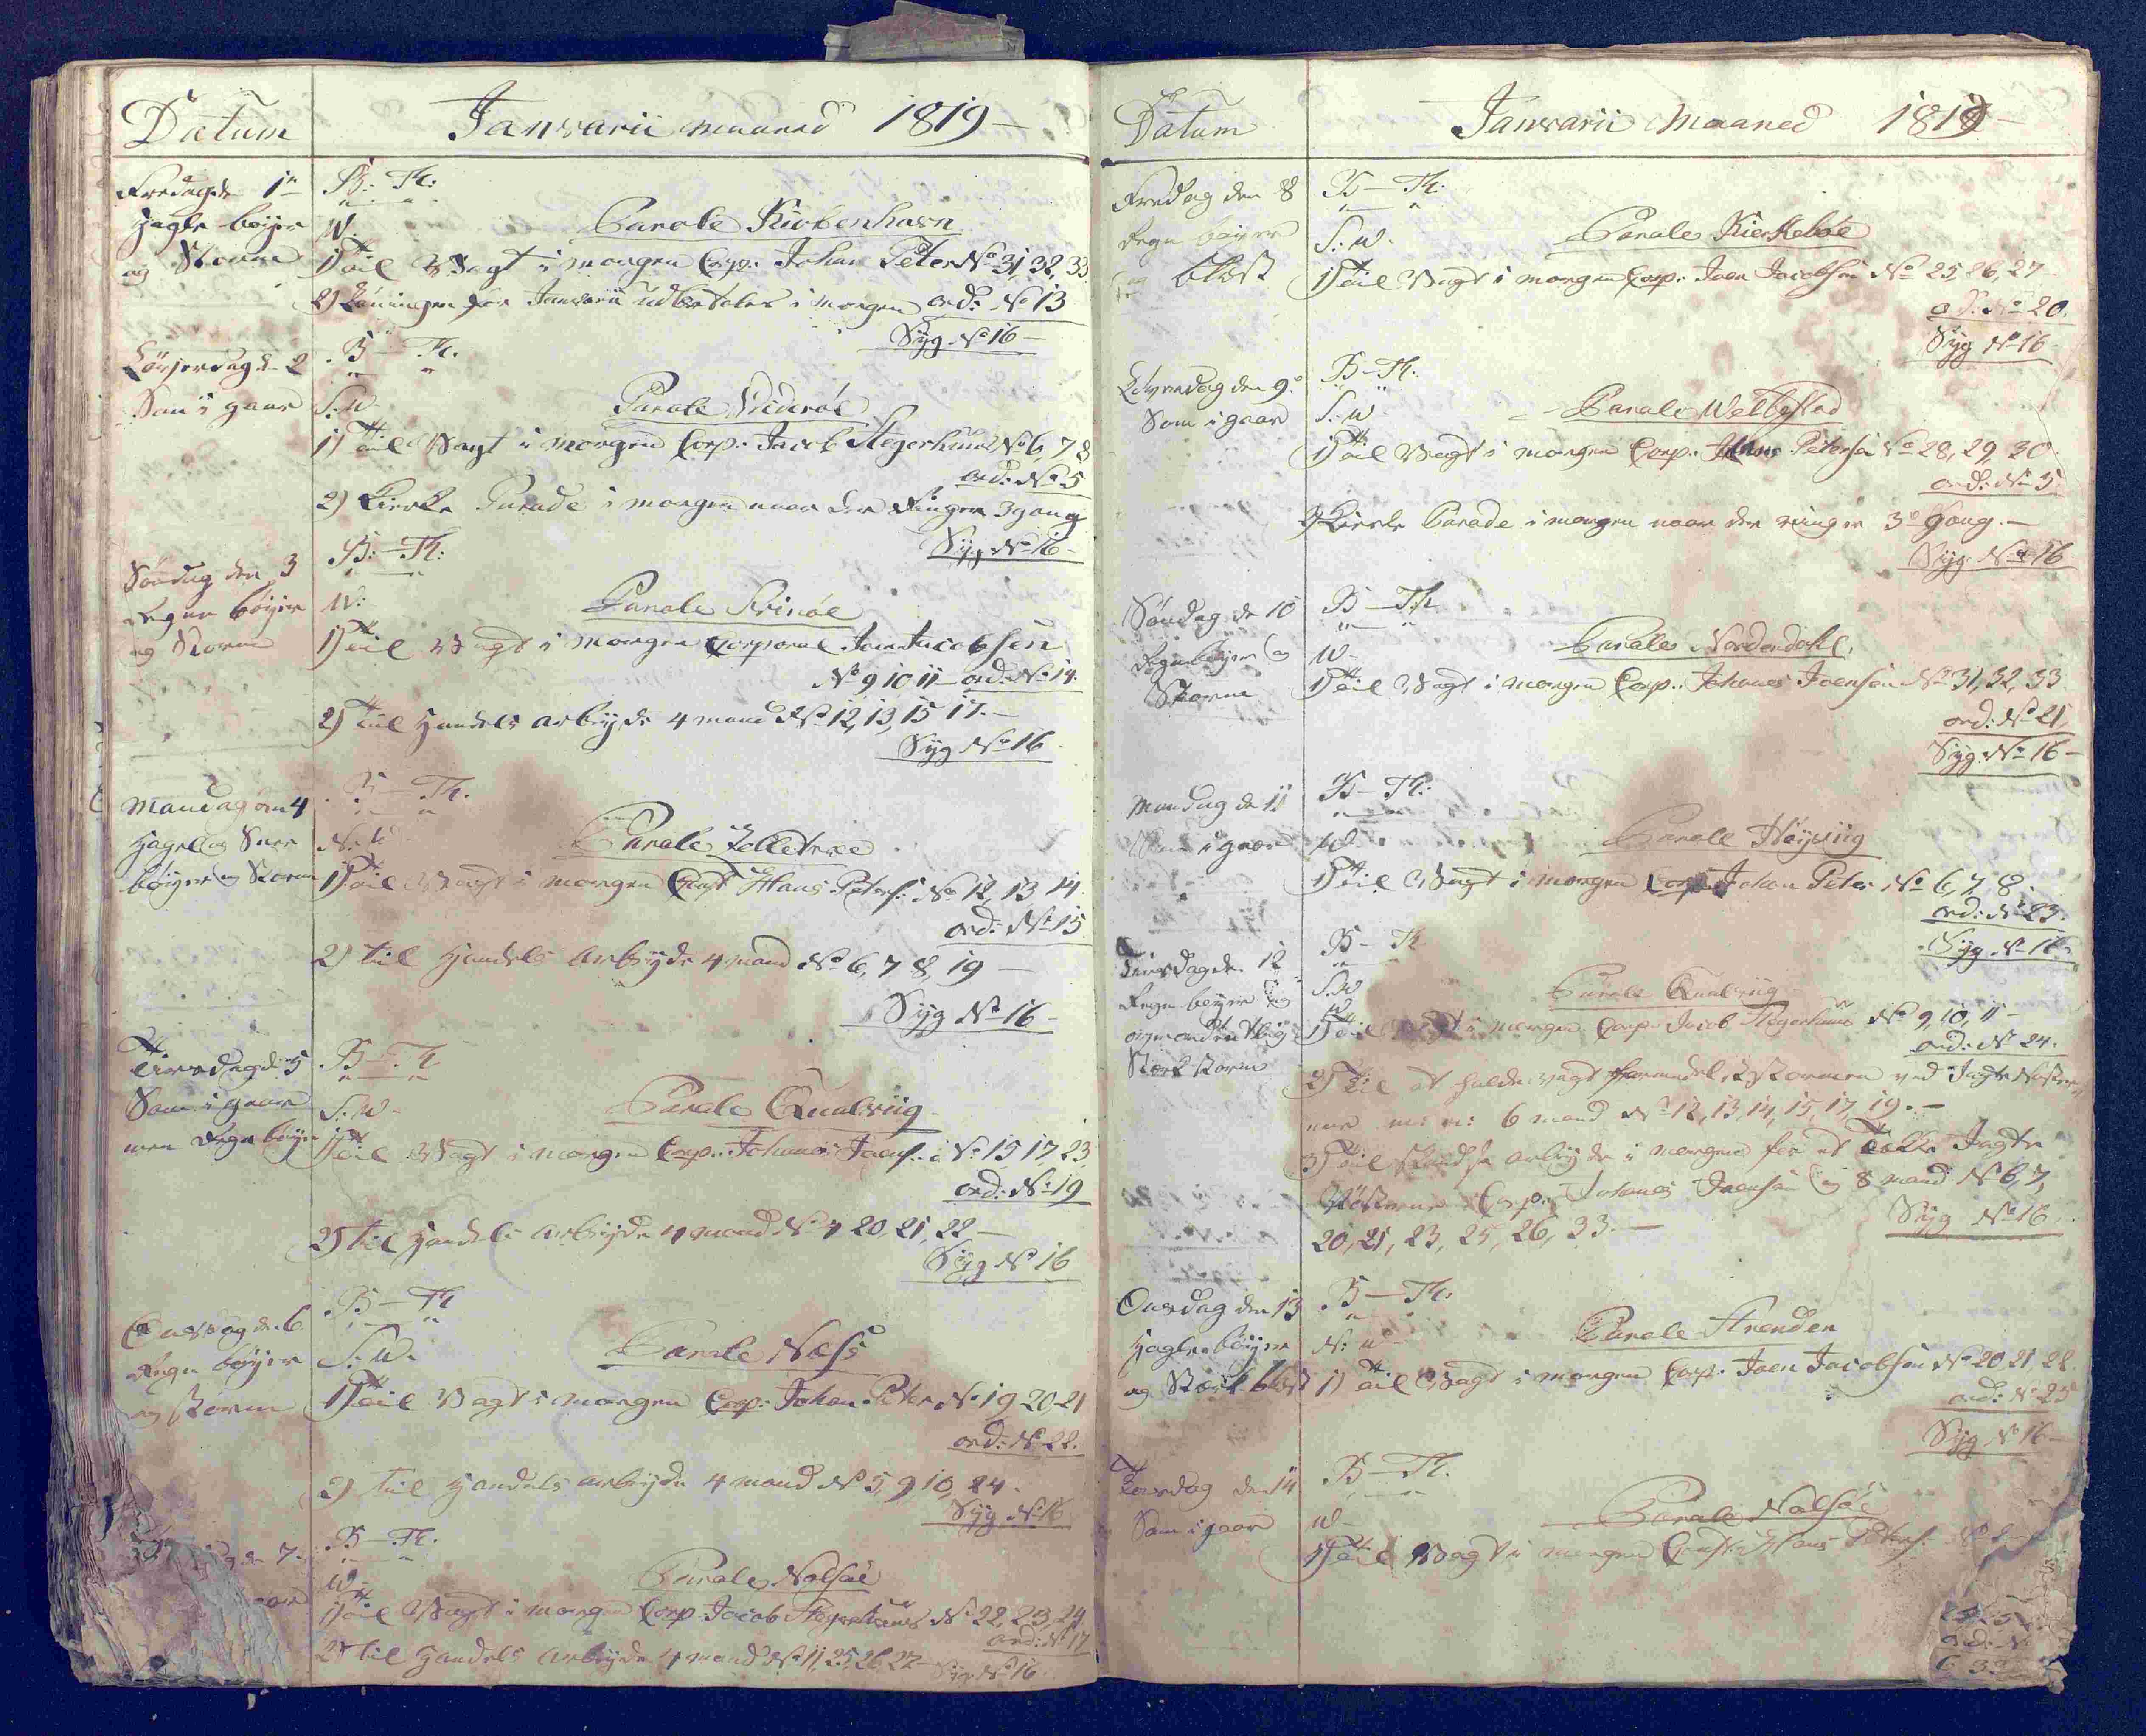 Datum
Januarii maaned 1819 —
Fredag de 1n
Hagle bøyer
og Storm
B: Th:
W.
Parole Kiøbenhavn
1) Til Vagt i morgen Corp: Johan Peter No 31, 32, 33
2) Lønningen for Januarii udbetales i morgen ord: No 13
Syg No 16 —
Løverdag d. 2
Som i gaar
B — Th.
S: W.
Parole Videröe
1) Til Vagt i morgen Corp: Jacob Stegerhuus No 6, 7 8
ord: No 5
2) Kirke Parade i morgen naar der Ringer 3 gang
Syg No 16 —
Søndag den 3
Regn bøyer
og Storm
B: — Th:
W:
Parole Svinöe
1) Til Vagt i morgen Corporal Joen Jacobsen
No 9 10 11 — ord: No 14.
2) Til Handels Arbeyde 4 mand No 12, 13, 15 17. —
Syg No 16
Mandag den 4
Hagel og Snee
bøyer og Storm
B — Th.
N: W
Parole Zelletræe
1) Til Vagt i morgen Const Hans Peters: No 12, 13 14
ord: No 15
2) til Handels Arbeyde 4 mand No 6, 7 8, 19 —
Syg No 16 —
Tirsdag d: 5
Som i gaar
men Regn bøyer
B — Th
S: W.
Parole Qualviig
1) Til Vagt i morgen Corp: Johanes Joens: No 15 17, 23,
ord: No 19
2) til Handels Arbeyde 4 mand No 7 20, 21, 22, —
Syg No 16
Onsdag den 6
Regn bøyer
og Storm
B — Th
S: W.
Parole Næss
1) Til Vagt i morgen Corp: Johan Peter No 19 20, 21
ord: No 22.
2) til Handels Arbeyde 4 mand No 5, 9 10, 24.
Syg No 16
den 7.
B — Th.
W.
Parole Nolsöe
1) Til Vagt i morgen Corp Jacob Stegerhuus No 22, 23, 24
ord: No 17
2) til Handels Arbeyde 4 mand No 11, 25, 26, 27 — Syg No 16
Datum
Januarii Maaned 1819 —
Fredag den 8
Regn bøyer
og blæst
B — Th:
S: W.
Parole Kirkebøe
1) Til Vagt i morgen Corp: Joen Jacobsen No 25, 26, 27
ord: No 20.
Syg No 16 —
Løverdag den 9
Som i gaar
B — Th:
S: W
Parole Welbestad
1) Til Vagt i morgen Corp: Hans Petersen No 28, 29, 30
ord: No 5
2) Kirke Parade i morgen naar der ringer 3 Gang. —
Syg No 16
Søndag de 10
Regn bøyer og
Storm
B — Th
W —
Parole Norderdahl,
1) Til Vagt i morgen Corp: Johanes Joensen No 31, 32, 33
ord: No 21,
Syg No 16 —
Mandag de 11
Som i gaar
B — Th:
W.
Parole Høyviig
1) Til Vagt i morgen Corp: Johan Peter No 6, 7, 8.
ord: No 23.
Syg No 16
Tiirsdag de. 12
Regn bøyer og
overordentlig
Stærk Storm
B — Th
S. W
Parole Qualviig
1) Til Vagt i morgen Corp: Jacob Stegerhuus No 9, 10, 11 —
ord: No 24.
2) Til at holde vagt formedelst Stormen ved Jagte
6 mand No 12, 13, 14, 15, 17, 19. —
3) Til arbeyde i morgen for at Jagte
Corp: Johanes Joensen og 8 mand No 6, 7,
20, 21, 23, 25, 26, 33. —
Syg No 16.
Onsdag den 13
Hagle bøyer
og Stærk blæst
B — Th:
N: W —
Parole Strender
1) Til Vagt i morgen Corp: Joen Jacobsen No 20 21, 22
ord: No 25
Syg No 16 —
Torsdag den 14
Som i gaar
B — Th.
W —
Parole Nolsöe
1) Til Vagt i morgen Const: Hans Peters:
ord: No